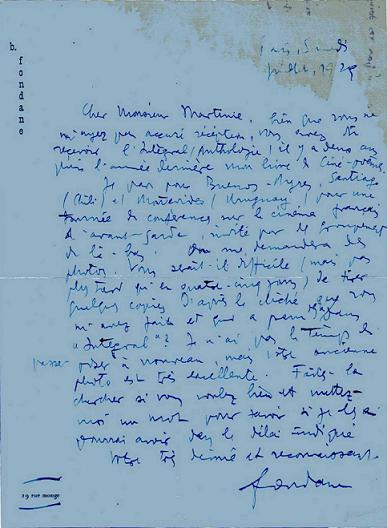 b. fondane
Paris, Samedi
juillet, 1929
Cher Monsieur Martinie, bien que vous ne
m'ayez pas accusé réception, vous avez dû
recevoir l'Intégral (Anthologie) il y a deux ans
puis l'année dernière mon livre de Ciné-poèmes.
Je pars pour Buenos-Ayres, Santiago
(Chili) et Montevideo (Uruguay) pour une
tournée de conférences sur le cinéma français
d'avant-garde, invité par les groupements
de là-bas. On me demande des
photos. Vous serait-il difficile (mais pas
plus tard qu'en quatre-cinq jours) de tirer
quelques copies d'après le cliché que vous
m'avez fait et qui a paru dans
"Intégral"? Je n'ai pas le temps de
poser à nouveau, mais votre ancienne
photo est très excellente. Faites-la
chercher si vous voulez bien et mettez-
moi un mot pour savoir si je les
pourrai avoir dans le délai indiqué
Votre très dévoué et reconnaissant.
Fondane
19 rue monge